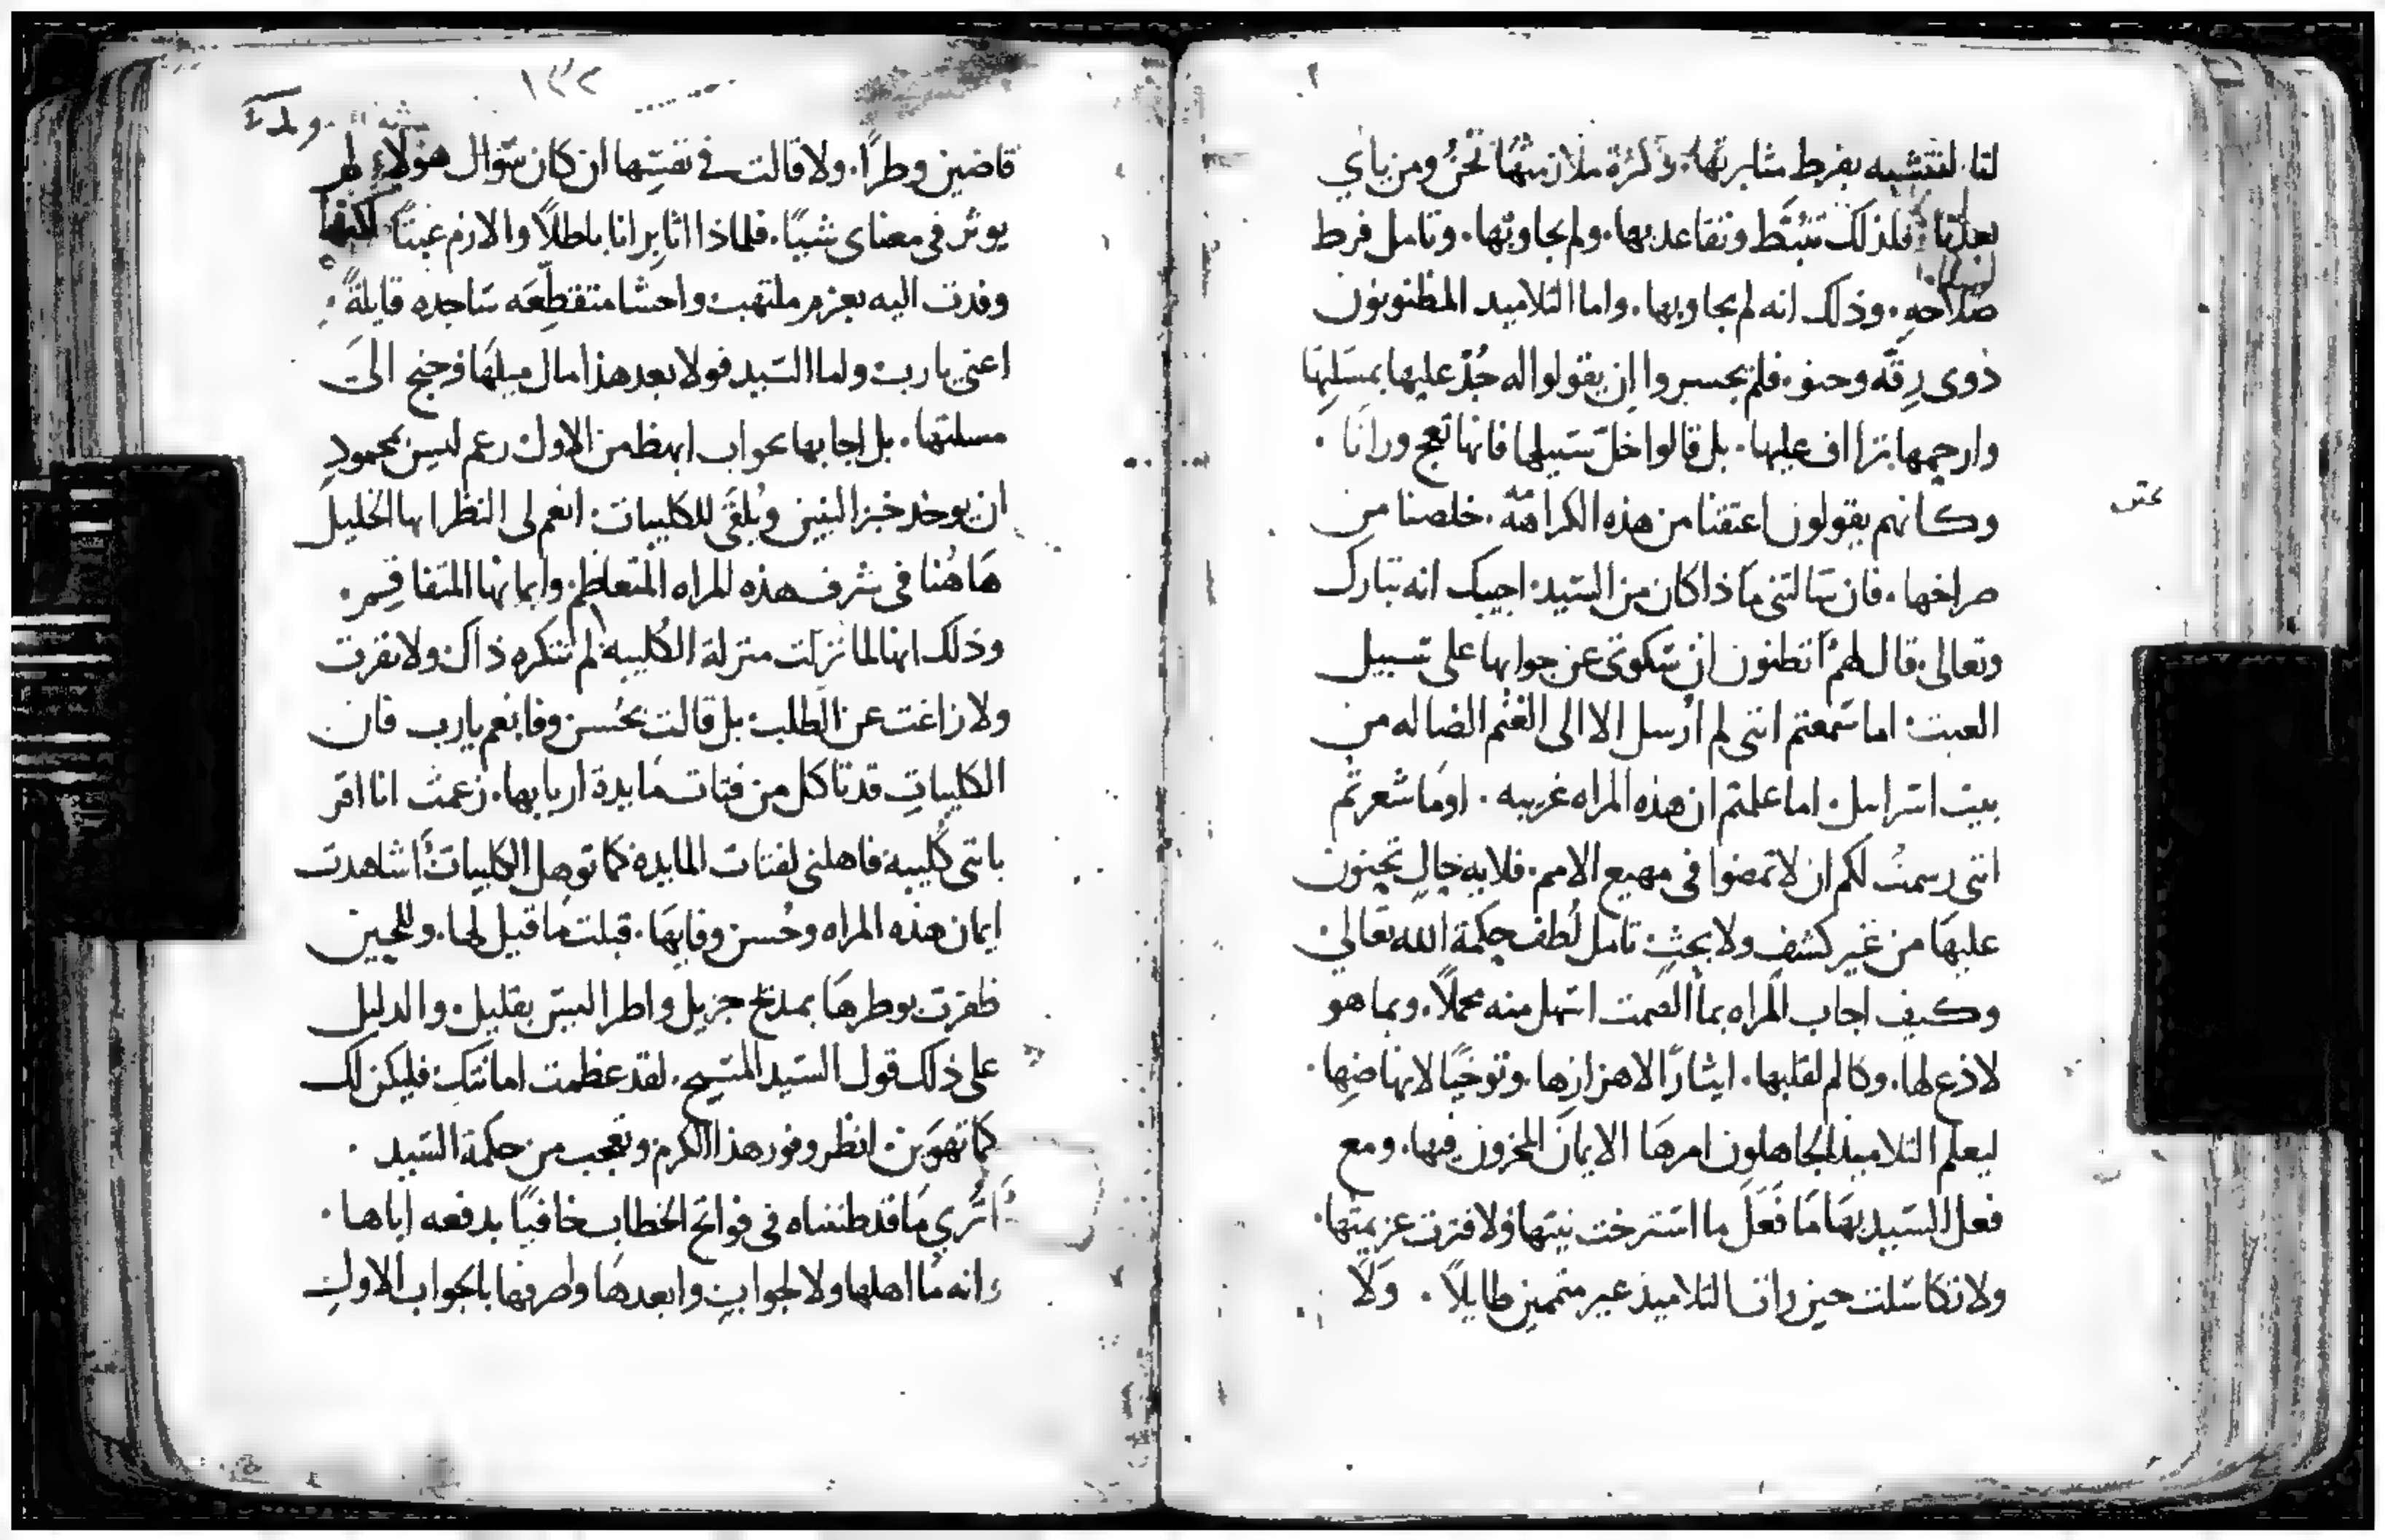 لنا لنتشبه بفرط مثابرتها وكثرة ملازمتها نحن ومن ياي
بعدنا فلذلك تثبط وتقاعد بها. ولم يجاوبها. وتامل فرط
صلاحه. وذلك انه لم يجاوبها. واما التلاميد المظنونون
ذوى رقه وحنو. فلم يجسروا ان يقولوا له جُدّ عليها بمسلتها
وارحمها ترااف عليها. بل قالوا خلّ سبيلها فانها تعج ورانا.
وكانهم يقولون اعتقنا من هذه الكراهة. خلصنا من
صراخها. فان سالتنى ما ذا كان من السيد: اجيبك انه تبارك
وتعالى قال لهم اتظنون ان سكوتى عن جوابها على سبيل
العبث: اما سمعتم اننى لم ارسل الا الى الغنم الضاله من
بيت اسراىىل. اما علمتم ان هذه المراه غريبه. اوما شعرتم
اننى رسمت لكم ان لا تمضوا فى مهيع الامم. فلايه حال تحننون
عليها من غير كشف ولا بحث تامل لُطف حكمة الله تعالى
وكيف اجاب المراه بما الصمت اسهل منه محملاً. وبما هو
لاذع لها. وكالم لقلبها. ايثارًا لاهزازها وتوخيًا لانهاضها.
ليعلم التلاميذ الجاهلون امرها الايمان المخزون فيها. ومع
فعل السيد بها ما فَعَلَ ما استرخت نيتها ولا فترت عزيمتها.
ولا تكاسلت حين رات التلاميذ غير متممين طايلاً. ولا
١٣٢
قاضين وطرًا. ولا قالت فى نفسها ان كان سوال هولاء لم
يوثر فى معناى شيئًا. فلماذا اثابر انا باطلاً والازم عبثًا لكنها
وفدت اليه بعزم ملتهب واحشا متقطعه ساجده قايلةً.
اعنى يا رب ولما السيد فولا بعد هذا مال ميلها وجنح الى
مسلتها. بل اجابها بجواب ابهظ من الاول زعم ليس بمحمود
ان يوخد خبز البنين ويُلقى للكليبات: انعم لى النظر ايها الخليل
هاهُنا فى شرف هذه المراه المتعاظم. وايمانها المتفاقم.
وذلك انها لما نزلت منزلة الكليبه لم تنكره ذاك ولا نفرت
ولا زاغت عن الطلب: بل قالت بحُسن وفا نعم يا رب فان
الكليبات قد تاكل من فتات مايدة اربابها. زعمت انا اقر
باننى كليبة فاهلنى لفتات المايده كما توهل الكليبات: اشاهدت
ايمان هذه المراه وحُسن وفايها. قبلت ما قيل لها. وللحين
ظفرت بوطرها بمدح جزيل واطرا ليس بقليل. والدليل
على ذلك قول السيد المسيح. لقد عظمت امانتك فليكن لك
كما تهوين: انظر وفور هذا الكرم وتعجب من حكمة السيد.
اترى ما قد ظنناه فى فواتح الخطاب خافيًا بدفعه اياها.
وانه ما اهلها ولا لجوابٍ وابعدها وصرفها بالجواب الاول